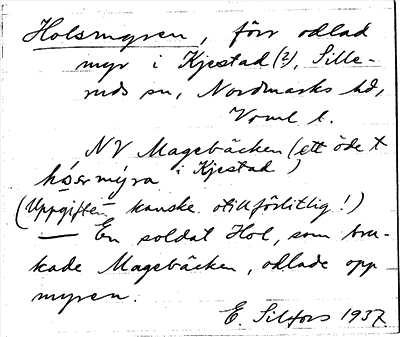 Holsmyren, förr odlad
myr i Kjestad (?), Sille-
ruds sn, Nordmarks hd,
Vrml l.
NV Magebäcken (ett öde t
i Kjestad)
(Uppgiften kanske otillförlitlig!)
— En soldat Hol, som bru-
kade Magebäcken, odlade opp
myren.
E. Silfors 1937